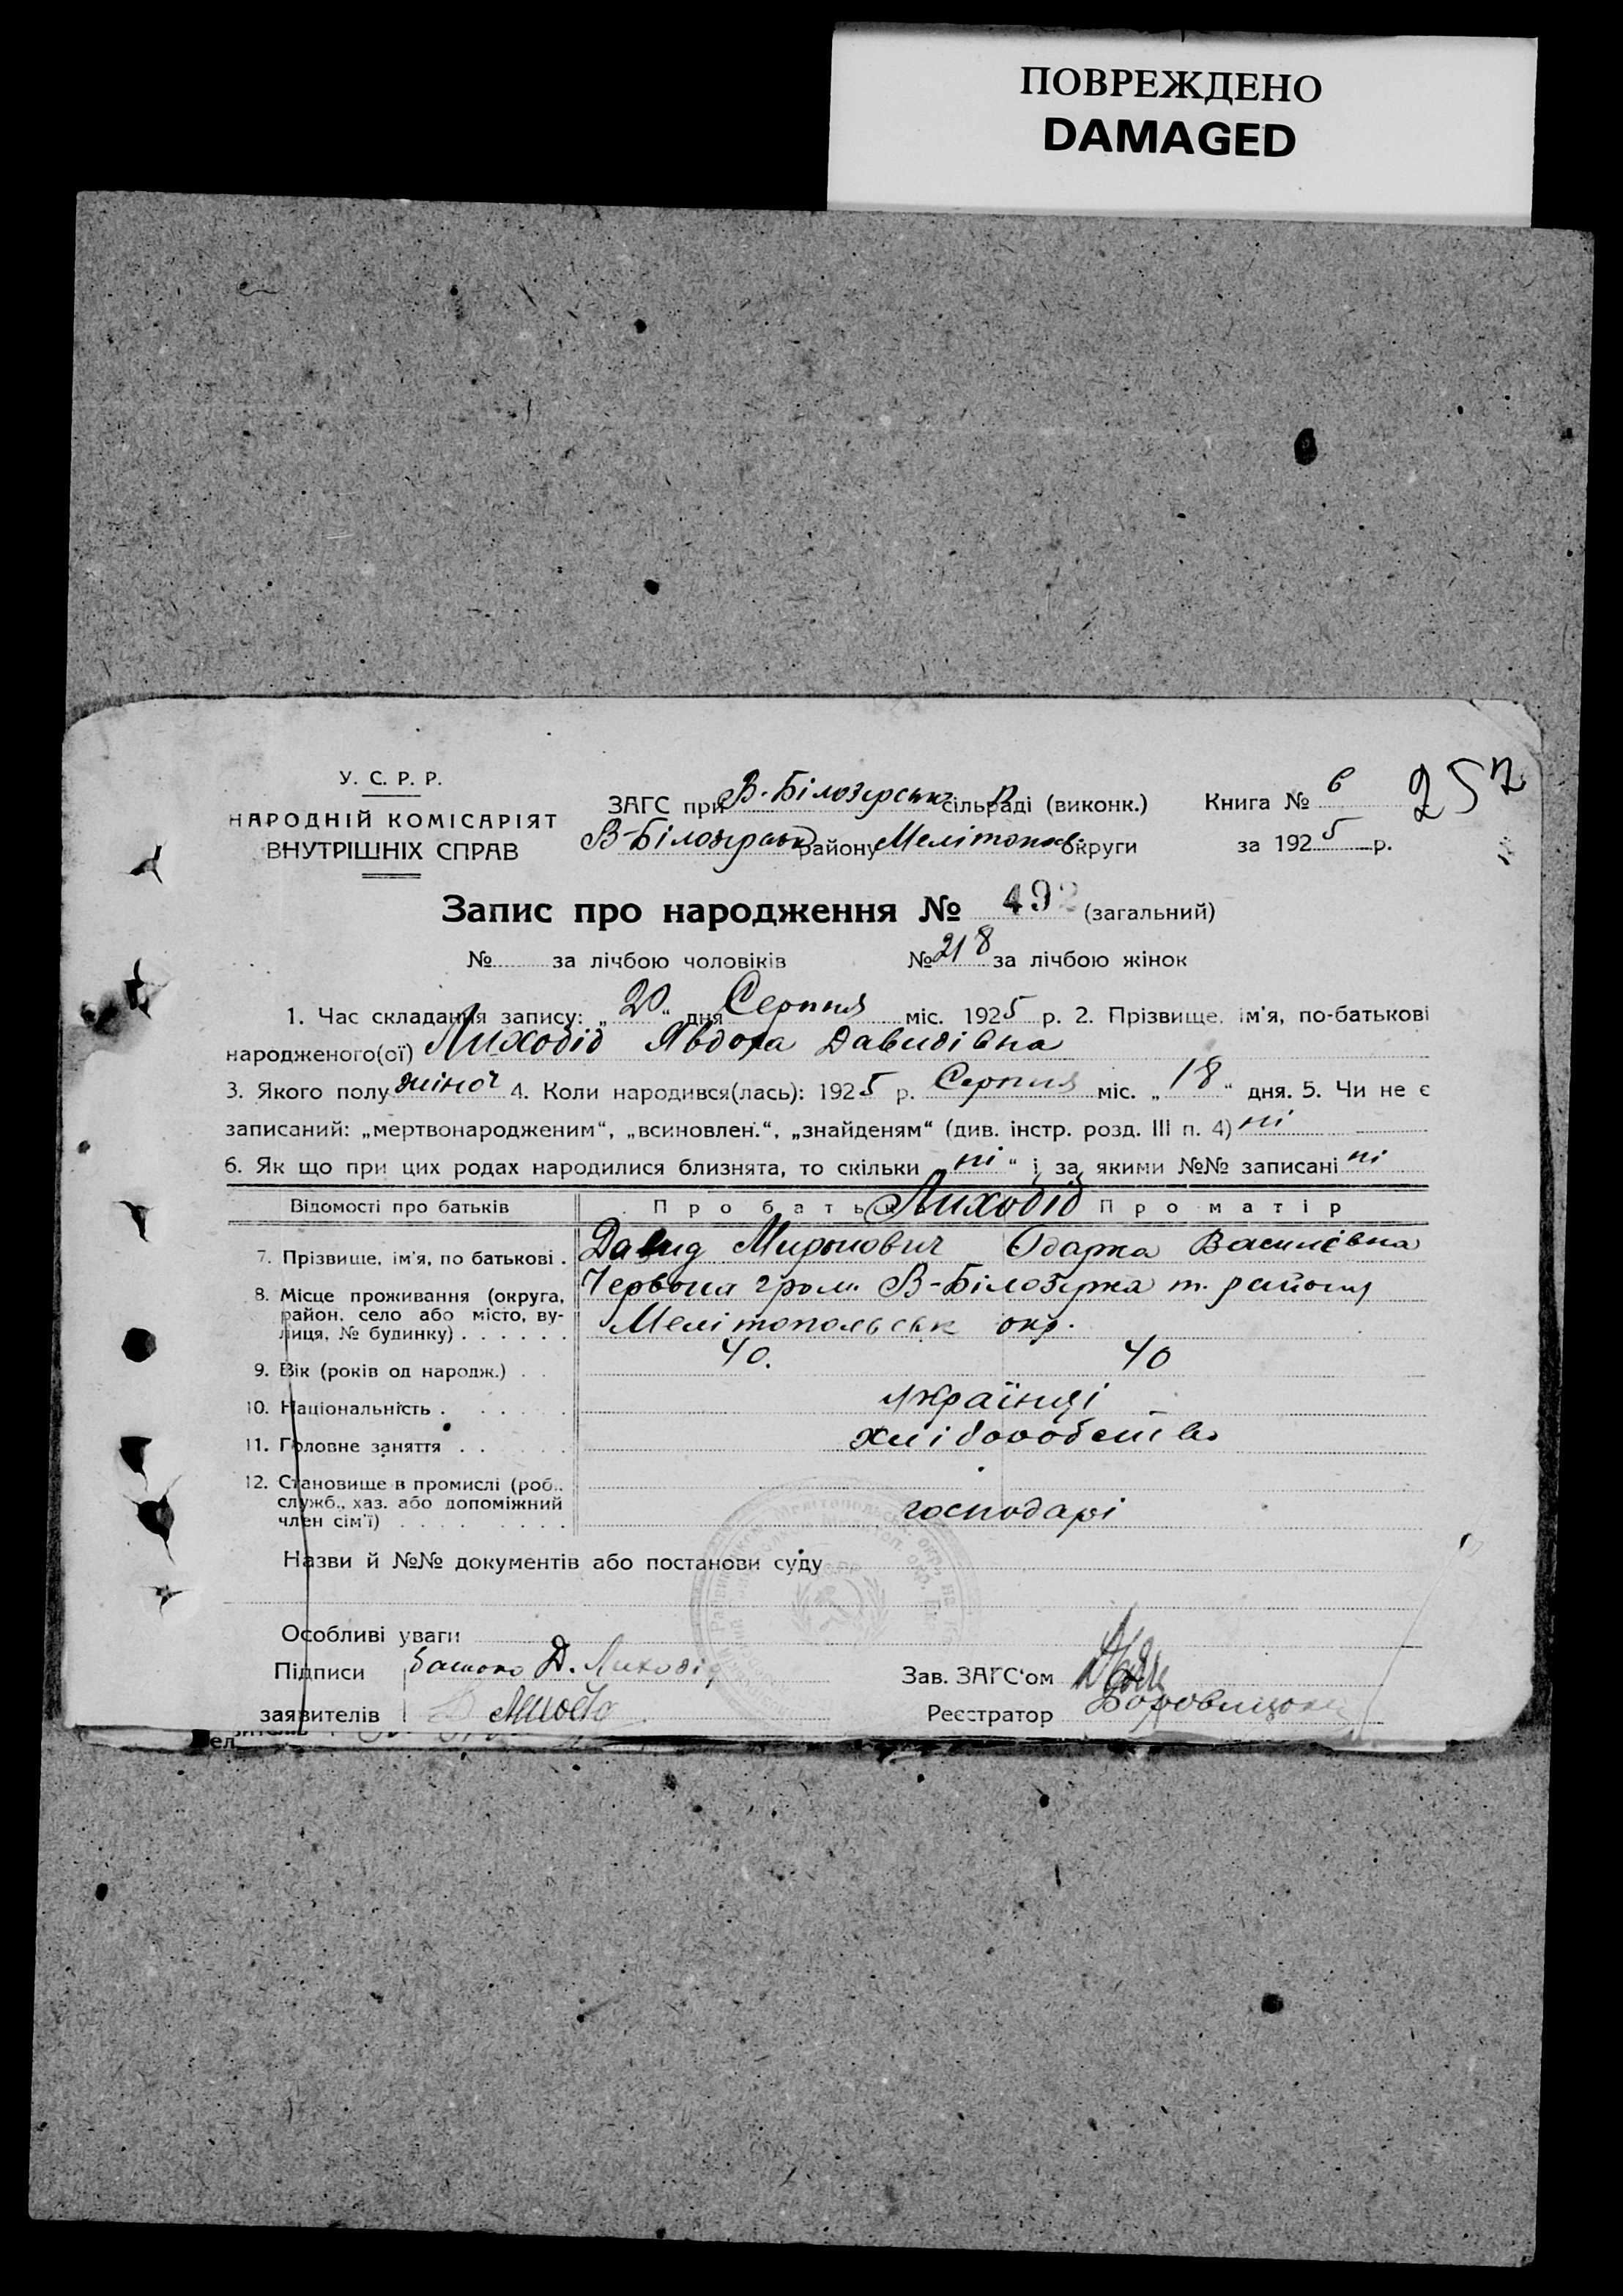 ПОВРЕЖДЕНО
DAMAGED
У. С. Р. Р.
НАРОДНІЙ КОМІСАРІЯТ
ВНУТРІШНІХ СПРАВ
ЗАГС при В-Білозерськ сільраді (виконк.)
В-Білозерськ району Мелітопол округи
Книга № 6
257
за 1925 р.
Запис про народження № 492 (загальний)
№ за лічбою чоловіків № 218 за лічбою жінок
1. Час складання запису: „20“ дня Серпня міс. 1925 р. 2. Прізвище, ім'я, по-батькові
народженого(ої) Лиходід Явдоха Давидівна
3. Якого полу жіноч 4. Коли народився(лась): 1925 р. Серпня міс. „18“ дня. 5. Чи не є
записаний: „мертвонародженим“, „всиновлен.“, „знайденям“ (див. інстр. розд. III п. 4) ні
6. Як що при цих родах народилися близнята, то скільки „ні“ і за якими №№ записані ні
Відомості про батьків Про батька Лиходід Про матір
7. Прізвище, ім'я, по батькові . Давид Миронович Одарка Василівна
8. Місце проживання (округа, район, село або місто, вулиця, № будинку) Червона гром. В-Білозерка т. району
Мелітопольськ окр.
9. Вік (років од народж.) . . 40. 40
10. Національність . українці
11. Головне заняття . . хліборобство
12. Становище в промислі (роб., служб., хаз. або допоміжний член сім'ї) господарі
Назви й №№ документів або постанови суду
Особливі уваги
Підписи заявителів Д. Лиходід
Зав. ЗАГС'ом
Реєстратор